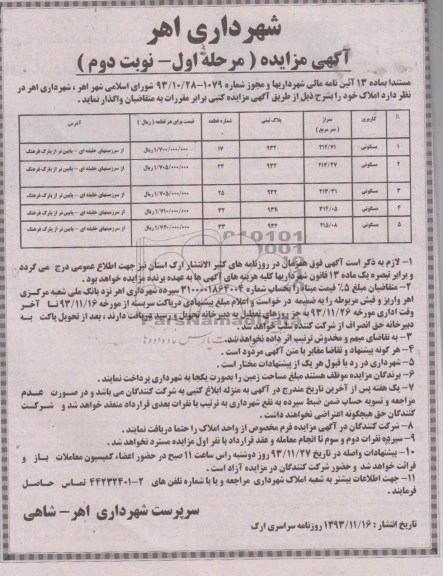 شهرداری اهر
آگهی مزایده ( مرحله اول - نوبت دوم )
مستندا بماده ۱۳ آئین نامه مالی شهرداریها و مجوز شماره ۱۰۷۹-۹۳/۱۰/۲۸ شورای اسلامی شهر اهر ، شهرداری اهر در
نظر دارد املاک خود را بشرح ذیل از طریق آگهی مزایده کتبی برابر مقررات به متقاضیان واگذار نماید .
کاربری متراژ ( متر مربع ) پلاک ثبتی شماره قطعه قیمت برای هر قطعه ( ریال ) آدرس
۱ مسکونی ۲۱۲/۴۱ ۹۳۲ ۱۷ ۱/۷۰۰/۰۰۰/۰۰۰ ریال از سرزمینهای خلیفه ای - پایین تر از پارک فرهنگ
۲ مسکونی ۲۱۳/۲۷ ۹۳۲ ۲۴ ۱/۷۰۵/۰۰۰/۰۰۰ ریال از سرزمینهای خلیفه ای - پایین تر از پارک فرهنگ
۳ مسکونی ۲۱۳/۴۱ ۹۳۲ ۲۵ ۱/۷۰۵/۰۰۰/۰۰۰ ریال از سرزمینهای خلیفه ای - پایین تر از پارک فرهنگ
۴ مسکونی ۲۱۴/۰۵ ۹۳۲ ۳۲ ۱/۷۱۰/۰۰۰/۰۰۰ ریال از سرزمینهای خلیفه ای - پایین تر از پارک فرهنگ
۵ مسکونی ۲۱۵/۰۸ ۹۳۲ ۳۳ ۱/۷۲۰/۰۰۰/۰۰۰ ریال از سرزمینهای خلیفه ای - پایین تر از پارک فرهنگ
۱- لازم به ذکر است آگهی فوق همزمان در روزنامه های کثیر الانتشار ارک استان نیز جهت اطلاع عمومی درج می گردد
و برابر تبصره یک ماده ۱۳ قانون شهرداریها کلیه هزینه های آگهی ها به عهده برنده مزایده خواهد بود .
۲- متقاضیان مبلغ ۵٪ قیمت مبنا را بحساب شماره ۳۱۰۰۰۰۱۸۶۴۰۰۴ سپرده شهرداری اهر نزد بانک ملی شعبه مرکزی
اهر واریز و فیش مربوطه را به ضمیمه درخواست و اعلام مبلغ پیشنهادی دریافت سربسته از مورخه ۹۳/۱۱/۱۶ تا آخر
وقت اداری مورخه ۹۳/۱۱/۲۶ به جز روزهای تعطیل به دبیرخانه تحویل و رسید دریافت دارند ، بعد از تحویل پاکت به
دبیرخانه حق انصراف از شرکت کننده سلب خواهد شد .
۳- به تقاضای مبهم و مخدوش ترتیب اثر داده نخواهد شد.
۴- هر گونه پیشنهاد و تقاضا مغایر با متن آگهی مردود است .
۵- شهرداری در رد یا قبول هر یک از پیشنهادات مختار است .
۶- برندگان مزایده موظف هستند مبلغ مساحت زمین را بصورت یکجا به شهرداری پرداخت نمایند .
۷- یک هفته پس از آخرین تاریخ مندرج در آگهی به منزله ابلاغ کتبی به شرکت کنندگان می باشد و در صورت عدم
مراجعه و تسویه حساب ضمن ضبط سپرده به نفع شهرداری به ترتیب با نفرات بعدی قرارداد منعقد خواهد شد و شرکت
کنندگان حق هیچگونه اعتراضی نخواهند داشت .
۸- شرکت کنندگان در آگهی مزایده فرم مخصوص از واحد املاک را حتما دریافت نمایند .
۹- سپرده نفرات دوم و سوم تا انجام معامله و عقد قرارداد با نفر اول مزایده مسترد نخواهد شد .
۱۰- پیشنهادات واصله در تاریخ ۹۳/۱۱/۲۷ روز دوشنبه راس ساعت ۱۱ صبح در حضور اعضاء کمیسیون معاملات باز و
قرائت خواهد شد و حضور شرکت کنندگان در مزایده آزاد است .
۱۱- جهت اطلاعات بیشتر به شعبه املاک شهرداری مراجعه و یا با شماره تلفن های ۲-۴۴۲۳۲۴۰۱ تماس حاصل
فرمایند .
سرپرست شهرداری اهر - شاهی
تاریخ انتشار : ۱۳۹۳/۱۱/۱۶ روزنامه سراسری ارک